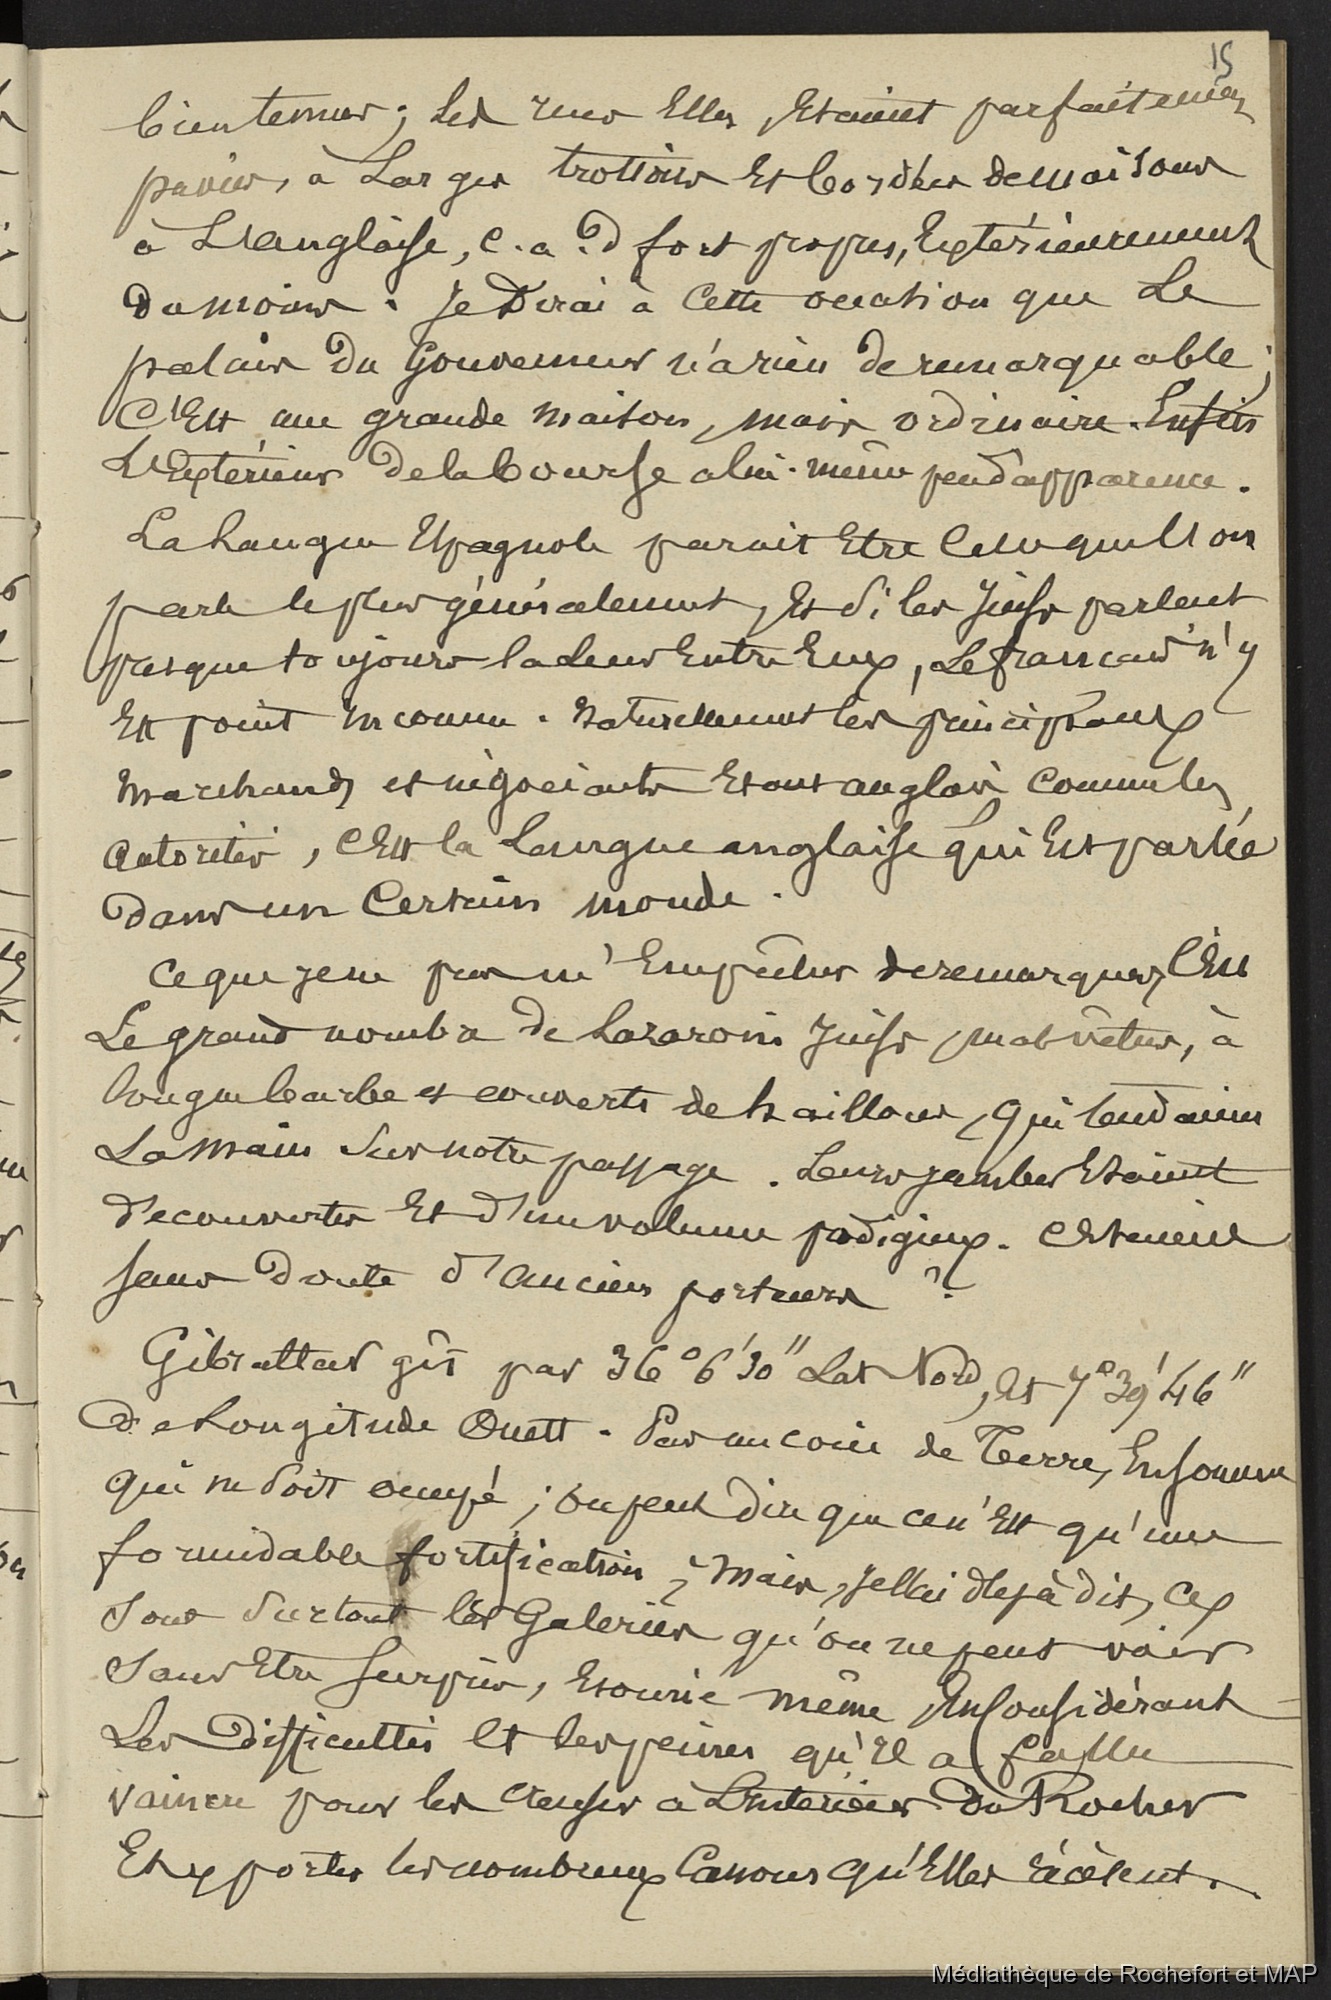 15
bien tenues ; les rues Elles, Etaient parfaitement
pavées, à Larges trottoirs Et bordées de maisons
à L'anglaise, c. a. d fort propres, Extérieurement
du moins. Je Dirai à Cette occasion que Le
palais Du Gouverneur n'a rien de remarquable ;
C'Est une grande maison, mais ordinaire. Enfin
L'Extérieur de la Bourse a lui-même peu d'apparence.
La Langue Espagnole parait Etre Celle que L'on
parle le plus généralement, Et si les Juifs parlent
presque toujours la Leur Entre Eux, Le français n'y
Est point Inconnu. Naturellement les principaux
Marchands et négociants Etant anglais Comme les
autorités, C'Est la Langue anglaise qui Est parlée
Dans un Certain monde.
Ce que je ne pus m'Empêcher de remarquer, C'Est
Le grand nombre de Lazaroni Juifs, mal vêtus, à
longue barbe et couverts de haillons, qui tendaient
La main Sur notre passage. Leurs jambes Etaient
découvertes Et d'un volume prodigieux. C'Etaient
sans Doute d'anciens porteurs ?
Gibraltar gît par 36° 6' 30" Lat Nord, Et 7° 39' 46"
De Longitude Ouest. Pas un coin de Terre, En somme
qui ne soit occupé ; on peut dire que ce n'Est qu'une
formidable fortification ; Mais, je l'ai déjà dit, ce
sont surtout les Galeries qu'on ne peut voir
sans Etre surpris, Etourdi même, En Considérant
Les Difficultés Et les peines qu'il a fallu
vaincre pour les creuser à L'Intérieur Du Rocher
Et y porter les nombreux Canons qu'Elles récèlent.
Médiathèque de Rochefort et MAP